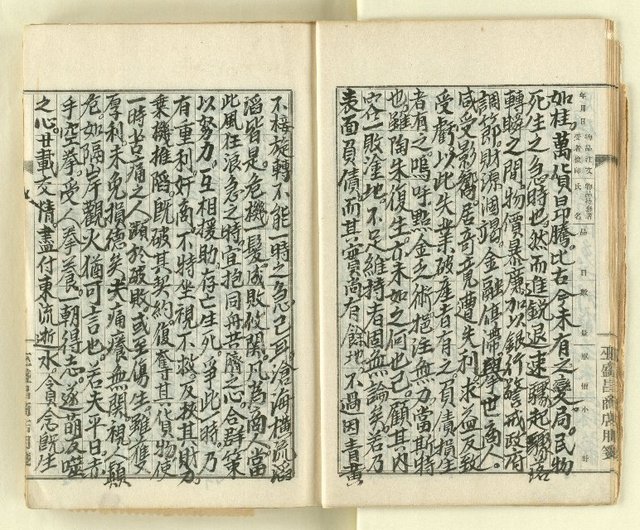 如桂萬貨昂騰比古今未有之變局民物
死生之急時也然而進銳退速驟起驟落
轉瞬之間物價暴廉加以銀行警戒政府
調節財源涸竭金融停滯舉世商人
咸受影響居奇竟遭失利求益反致
受虧以此失業破產者有之負債橫生
者有之嗚呼點金之術挹注無力當斯特
也雖陶朱復生亦未如之何也已顧其內
容一敗塗地不足維持者固無論矣若乃
表面負債而其實尚有餘地不過因青黃
不接旋轉不能一時之急已耳滄海橫流滔
滔皆是危機一髮成敗攸關凡為商人當
此風狂浪急之時宜抱同舟共濟之心合群策
以努力互相援助存亡生死爭此時乃
有重利奸商不特坐視不救反敢其財力
乘機推陷既破其契約復奪其貨物使
一時苦痛之人顯於破敗或至傷生雖隻
厚利未免損德矣夫痛癢無關視人顛
危如隔岸觀火猶可言也若夫平日赤
手空拳受人拳養一朝得志遂萌反噬
之心廿載交情盡付東流逝水貪念既生
年月日
物品注文
受者檢印
氏名
品目
數量
單價
小計
巫盛昌商店用箋